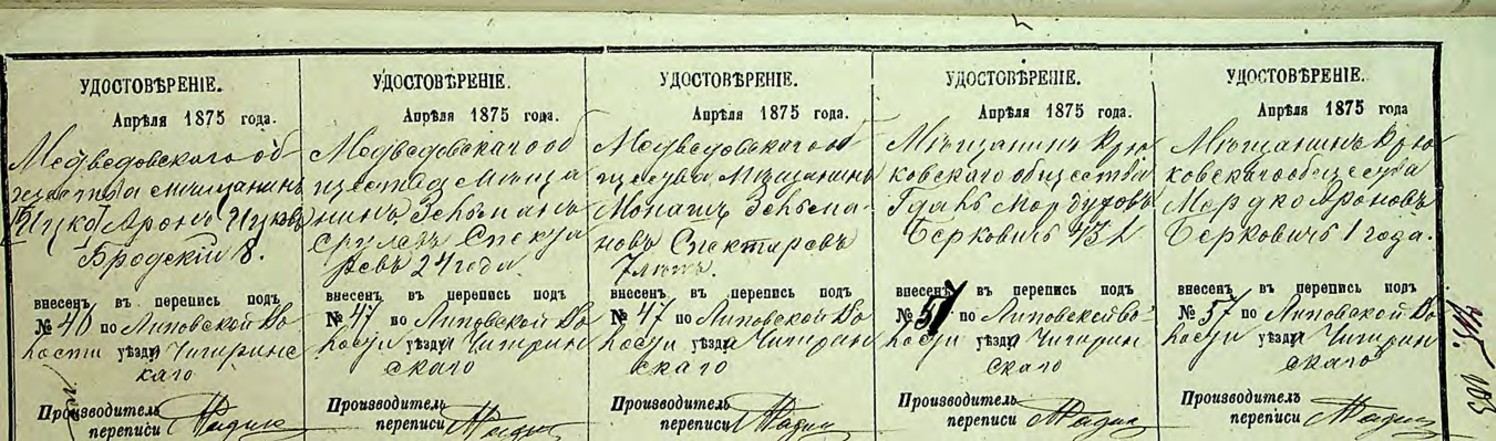 УДОСТОВѢРЕНІЕ.
Апрѣля 1875 года.
Медведовского об-
щества мещанинъ
Ицко Аронъ Ицков
Бродскій 8.
внесенъ въ перепись подъ
№ 46 по Липовской Во-
лости уѣзда Чигиринс
каго
Производитель
переписи
УДОСТОВѢРЕНІЕ.
Апрѣля 1875 года.
Медведовскаго об
щества Мѣща
нинъ Зельманъ
Срулевъ Спекта
ревъ 24 года.
внесенъ въ перепись подъ
№ 47 по Липовской Во
лости уѣзда Чигирин
скаго
Производитель
переписи
УДОСТОВѢРЕНІЕ.
Апрѣля 1875 года.
Медведовского об
щества Мѣщанинъ
Монашъ Зельма-
новъ Спектаревъ
7 лѣтъ.
внесенъ въ перепись подъ
№ 47 по Липовской Во
лости уѣзда Чигирин
скаго
Производитель
переписи
УДОСТОВѢРЕНІЕ.
Апрѣля 1875 года.
Мѣщанинъ Крю
ковскаго общества
Мордуховъ
Берковичъ 43 л
внесенъ въ перепись подъ
№ 57 по Липовской во-
лости уѣзда Чигирин
скаго
Производитель
переписи
УДОСТОВѢРЕНІЕ.
Апрѣля 1875 года
Мѣщанинъ Крю
ковскаго общества
Мордко Ароновъ
Берковичъ 1 года.
внесенъ въ перепись подъ
№ 57 по Липовской Во
лости уѣзда Чигирин
скаго
Производитель
переписи